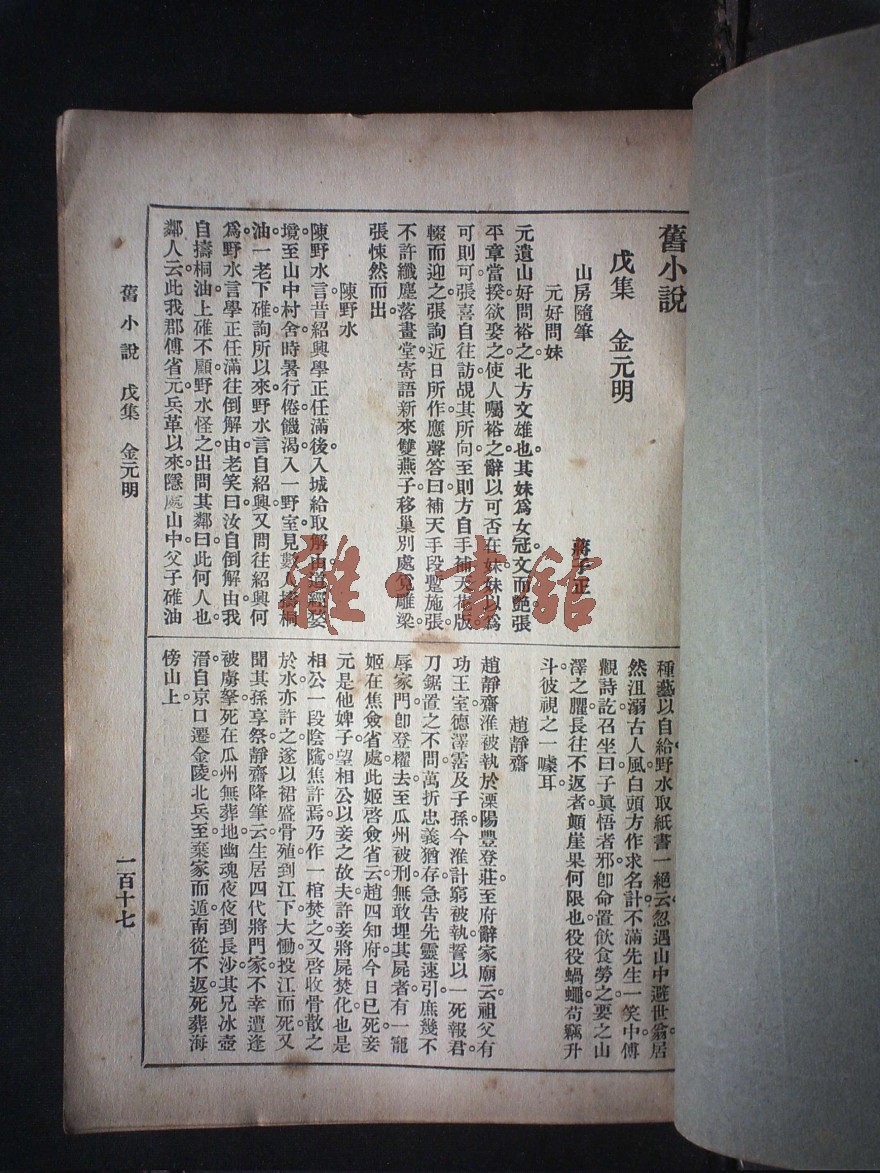 舊小說
戊集　金元明
山房隨筆　蔣子正
元好問妹
元遺山好問裕之北方文雄也。其妹爲女冠。文而艷。張
平章當揆欲娶之。使人囑裕之。辭以可否在妹。妹以爲
可則可。張喜自往訪。覘其所向。至則方自手補天花板。
輟而迎之。張詢近日所作。應聲答曰。補天手段蹔施張。
不許纖塵落畫堂。寄語新來雙燕子。移巢別處覓雕梁。
張悚然而出。
陳野水
陳野水言。昔紹興學正任滿後。入城給取解由。道經婺
境。至山中村舍。時暑行倦饑渴。入一野室。見數人擣桐
油。一老下碓。詢所以來。野水言自紹興。又問往紹興何
爲。野水言學正任滿。往倒解由。老笑曰。汝自倒解由。我
自擣桐油。上碓不顧。野水怪之。出問其鄰曰。此何人也。
鄰人云。此我郡傅省元。兵革以來。隱處山中。父子碓油
種藝以自給。野水取紙書一絕云。忽遇山中避世翁。居
然沮溺古人風。白頭方作求名計。不滿先生一笑中。傅
觀詩訖。召坐曰。子眞悟者邪。卽命置飲食勞之。要之山
澤之臞。長往不返者。顛崖果何限也。役役蝸蠅。苟竊升
斗。彼視之一噱耳。
趙靜齋
趙靜齋淮被執於溧陽豐登莊。至府辭家廟云。祖父有
功王室。德澤霑及子孫。今淮計窮被執。誓以一死報君。
刀鋸置之不問。萬折忠義猶存。急告先靈速引。庶幾不
辱家門。卽登櫂去。至瓜州被刑。無敢埋其屍者。有一寵
姬在焦僉省處。此姬啓僉省云。趙四知府今日已死。妾
元是他婢子。望相公以妾之故夫。許妾將屍焚化。也是
相公一段陰隲。焦許焉。乃作一棺焚之。又啓收骨散之
於水。亦許之。遂以裙盛骨殖。到江下大慟。投江而死。又
聞其孫享祭。靜齋降筆云。生居四代將門家。不幸遭逢
被虜拏。死在瓜州無葬地。幽魂夜夜到長沙。其兄冰壺
溍。自京口遷金陵。北兵至。棄家而遁。南從不返。死葬海
傍山上。
舊小說　戊集　金元明
一百十七
雜・書館